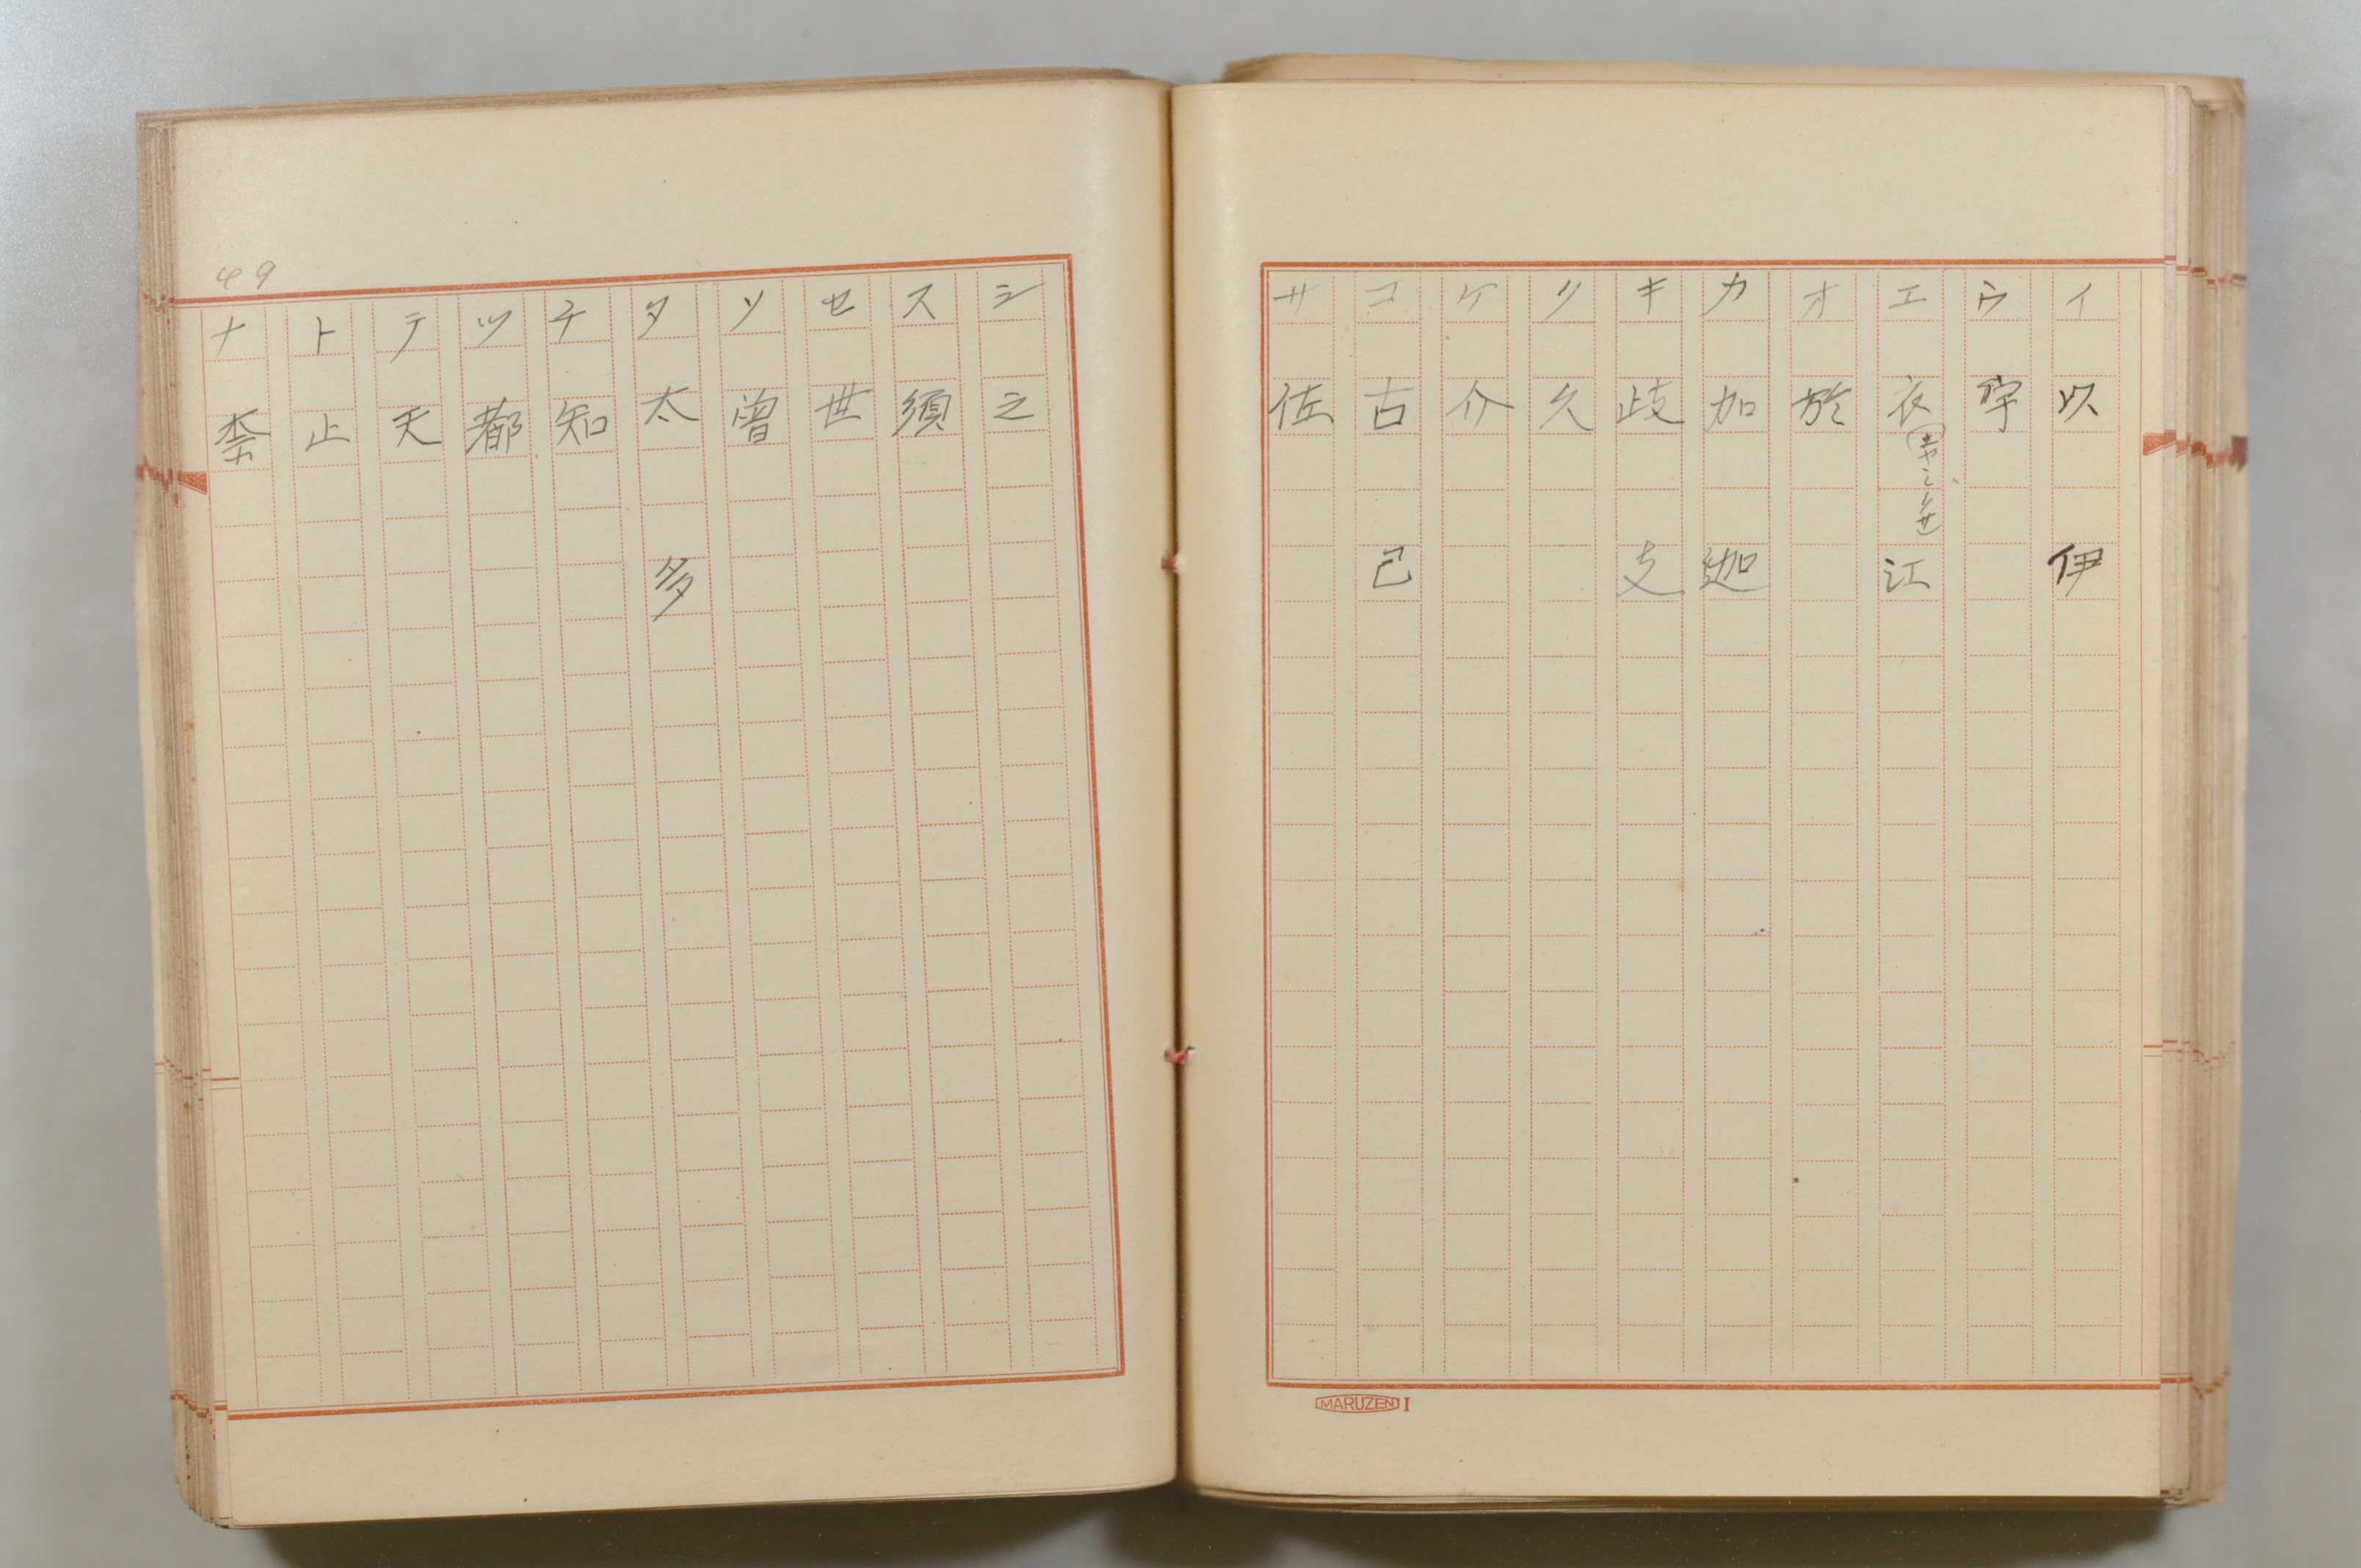 イ 以 伊
ウ 宇
エ 衣 江
オ 於
カ 加 迦
キ 岐 支
ク 久
ケ 介
コ 古 己
サ 佐
MARUZEN I
シ 之
ス 須
セ 世
ソ 曽
タ 太 多
チ 知
ツ 都
テ 天
ト 止
ナ 奈
49